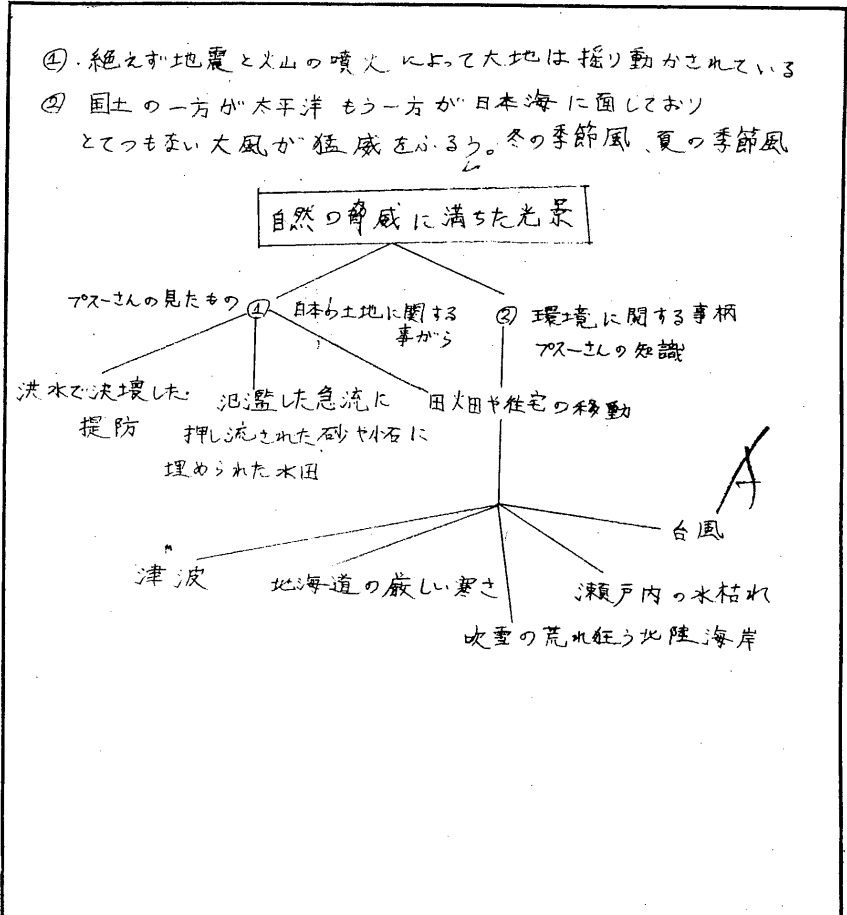 ①.絶えず地震と火山の噴火によって大地は揺り動かされている
② 国土の一方が太平洋もう一方が日本海に面しており
とてつもない大風が猛威をふるう。冬の季節風、夏の季節風
自然の脅威に満ちた光景
プスーさんの見たもの ① 日本の土地に関する
事がら
② 環境に関する事柄
プスーさんの知識
洪水で決壊した
提防
氾濫した急流に
押し流された砂や小石に
埋められた水田
田畑や住宅の移動
A
台風
津波
北海道の厳しい寒さ
瀬戸内の水枯れ
吹雪の荒れ狂う北陸海岸